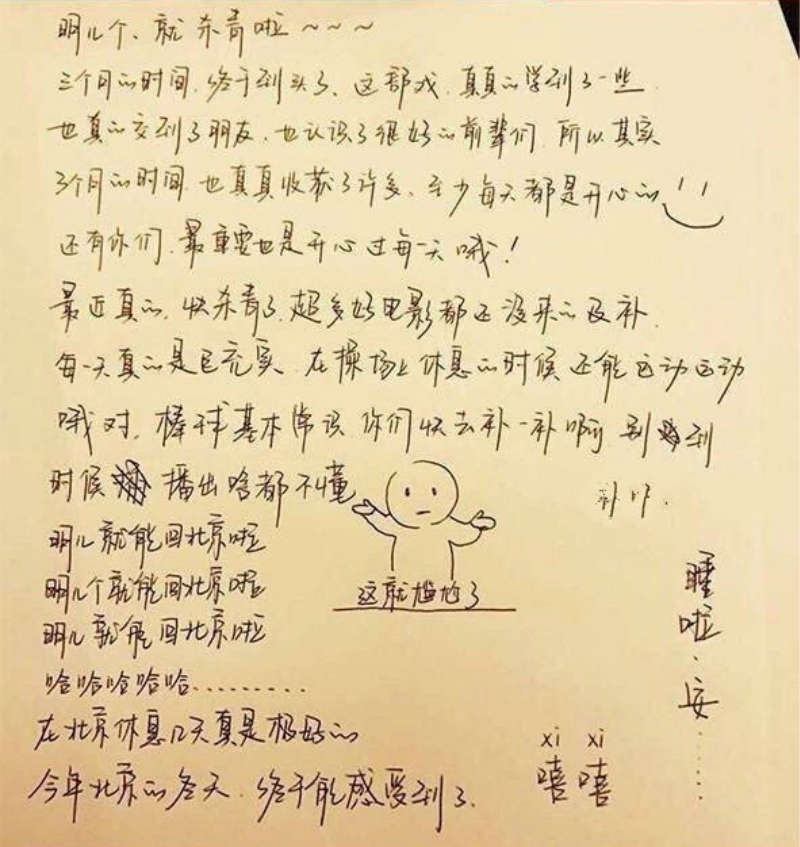 明儿个、就杀青啦~~~
三个月的时间.终于到头了、这部戏.真真的学到了一些.
也真的交到了朋友、也认识了很好的前辈们.所以其实
3个月的时间.也真真收获了许多、至少每天都是开心的
还有你们.最重要也是开心过每一天哦!
最近真的.快杀青了.超多好电影都还没来的及补.
每一天真的是巨充实.在操场上休息的时候还能运动运动
哦对.棒球基本常识.你们快去补一补啊别到
时候播出啥都不懂
补吖.
明儿就能回北京啦
明儿个就能回北京啦
明儿就能回北京啦
这就尴尬了
哈哈哈哈哈.........
在北京休息几天真是极好的
今年北京的冬天.终于能感受到了.
xi xi
嘻嘻
睡啦.安......